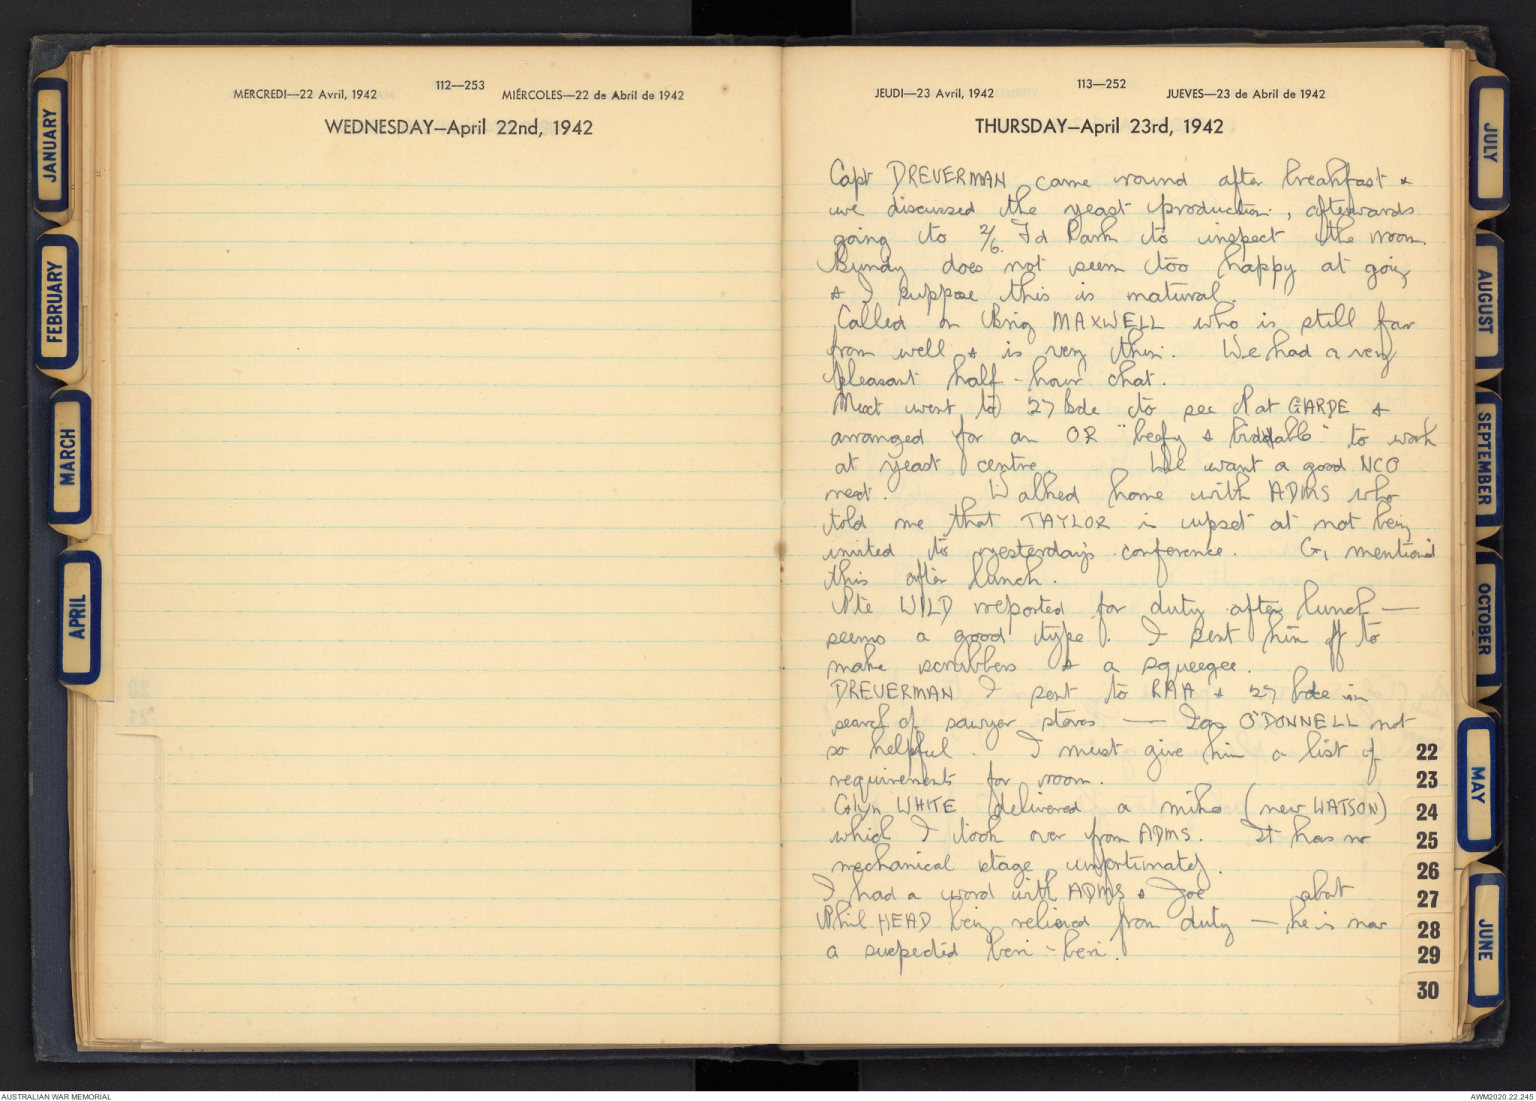 JANUARY
FEBRUARY
MARCH
APRIL
MERCREDI—22 Avril, 1942
112—253
MIÉRCOLES—22 de Abril de 1942
WEDNESDAY—April 22nd, 1942
JEUDI—23 Avril, 1942
113—252
JUEVES—23 de Abril de 1942
THURSDAY—April 23rd, 1942
Capt DREVERMAN came round after breakfast &
we discussed the yeast production, afterwards
going to 2/6 Fd Park to inspect the room.
Bundy does not seem too happy at going
& I suppose this is natural.
Called on Brig MAXWELL who is still far
from well & is very thin. We had a very
pleasant half-hour chat.
Next went to 27 bde to see Pat GARDE &
arranged for an OR "beefy & biddable" to work
at yeast centre. We want a good NCO
next. Walked home with ADMS who
told me that TAYLOR is upset at not being
invited to yesterday's conference. G1 mentioned
this after lunch.
Pte WILD reported for duty after lunch —
seems a good type. I sent him off to
make scrubbers & a squeegee.
DREVERMAN I sent to RAA & 27 bde in
search of sawyer stoves — O'DONNELL not
so helpful. I must give him a list of
requirements for room.
Glyn WHITE delivered a mike (new WATSON)
which I took over from ADMS. It has no
mechanical stage unfortunately.
I had a word with ADMS & Joe about
Phil HEAD being relieved from duty — he is now
a suspected beri-beri.
22
23
24
25
26
27
28
29
30
JULY
AUGUST
SEPTEMBER
OCTOBER
MAY
JUNE
AUSTRALIAN WAR MEMORIAL
AWM2020.22.245